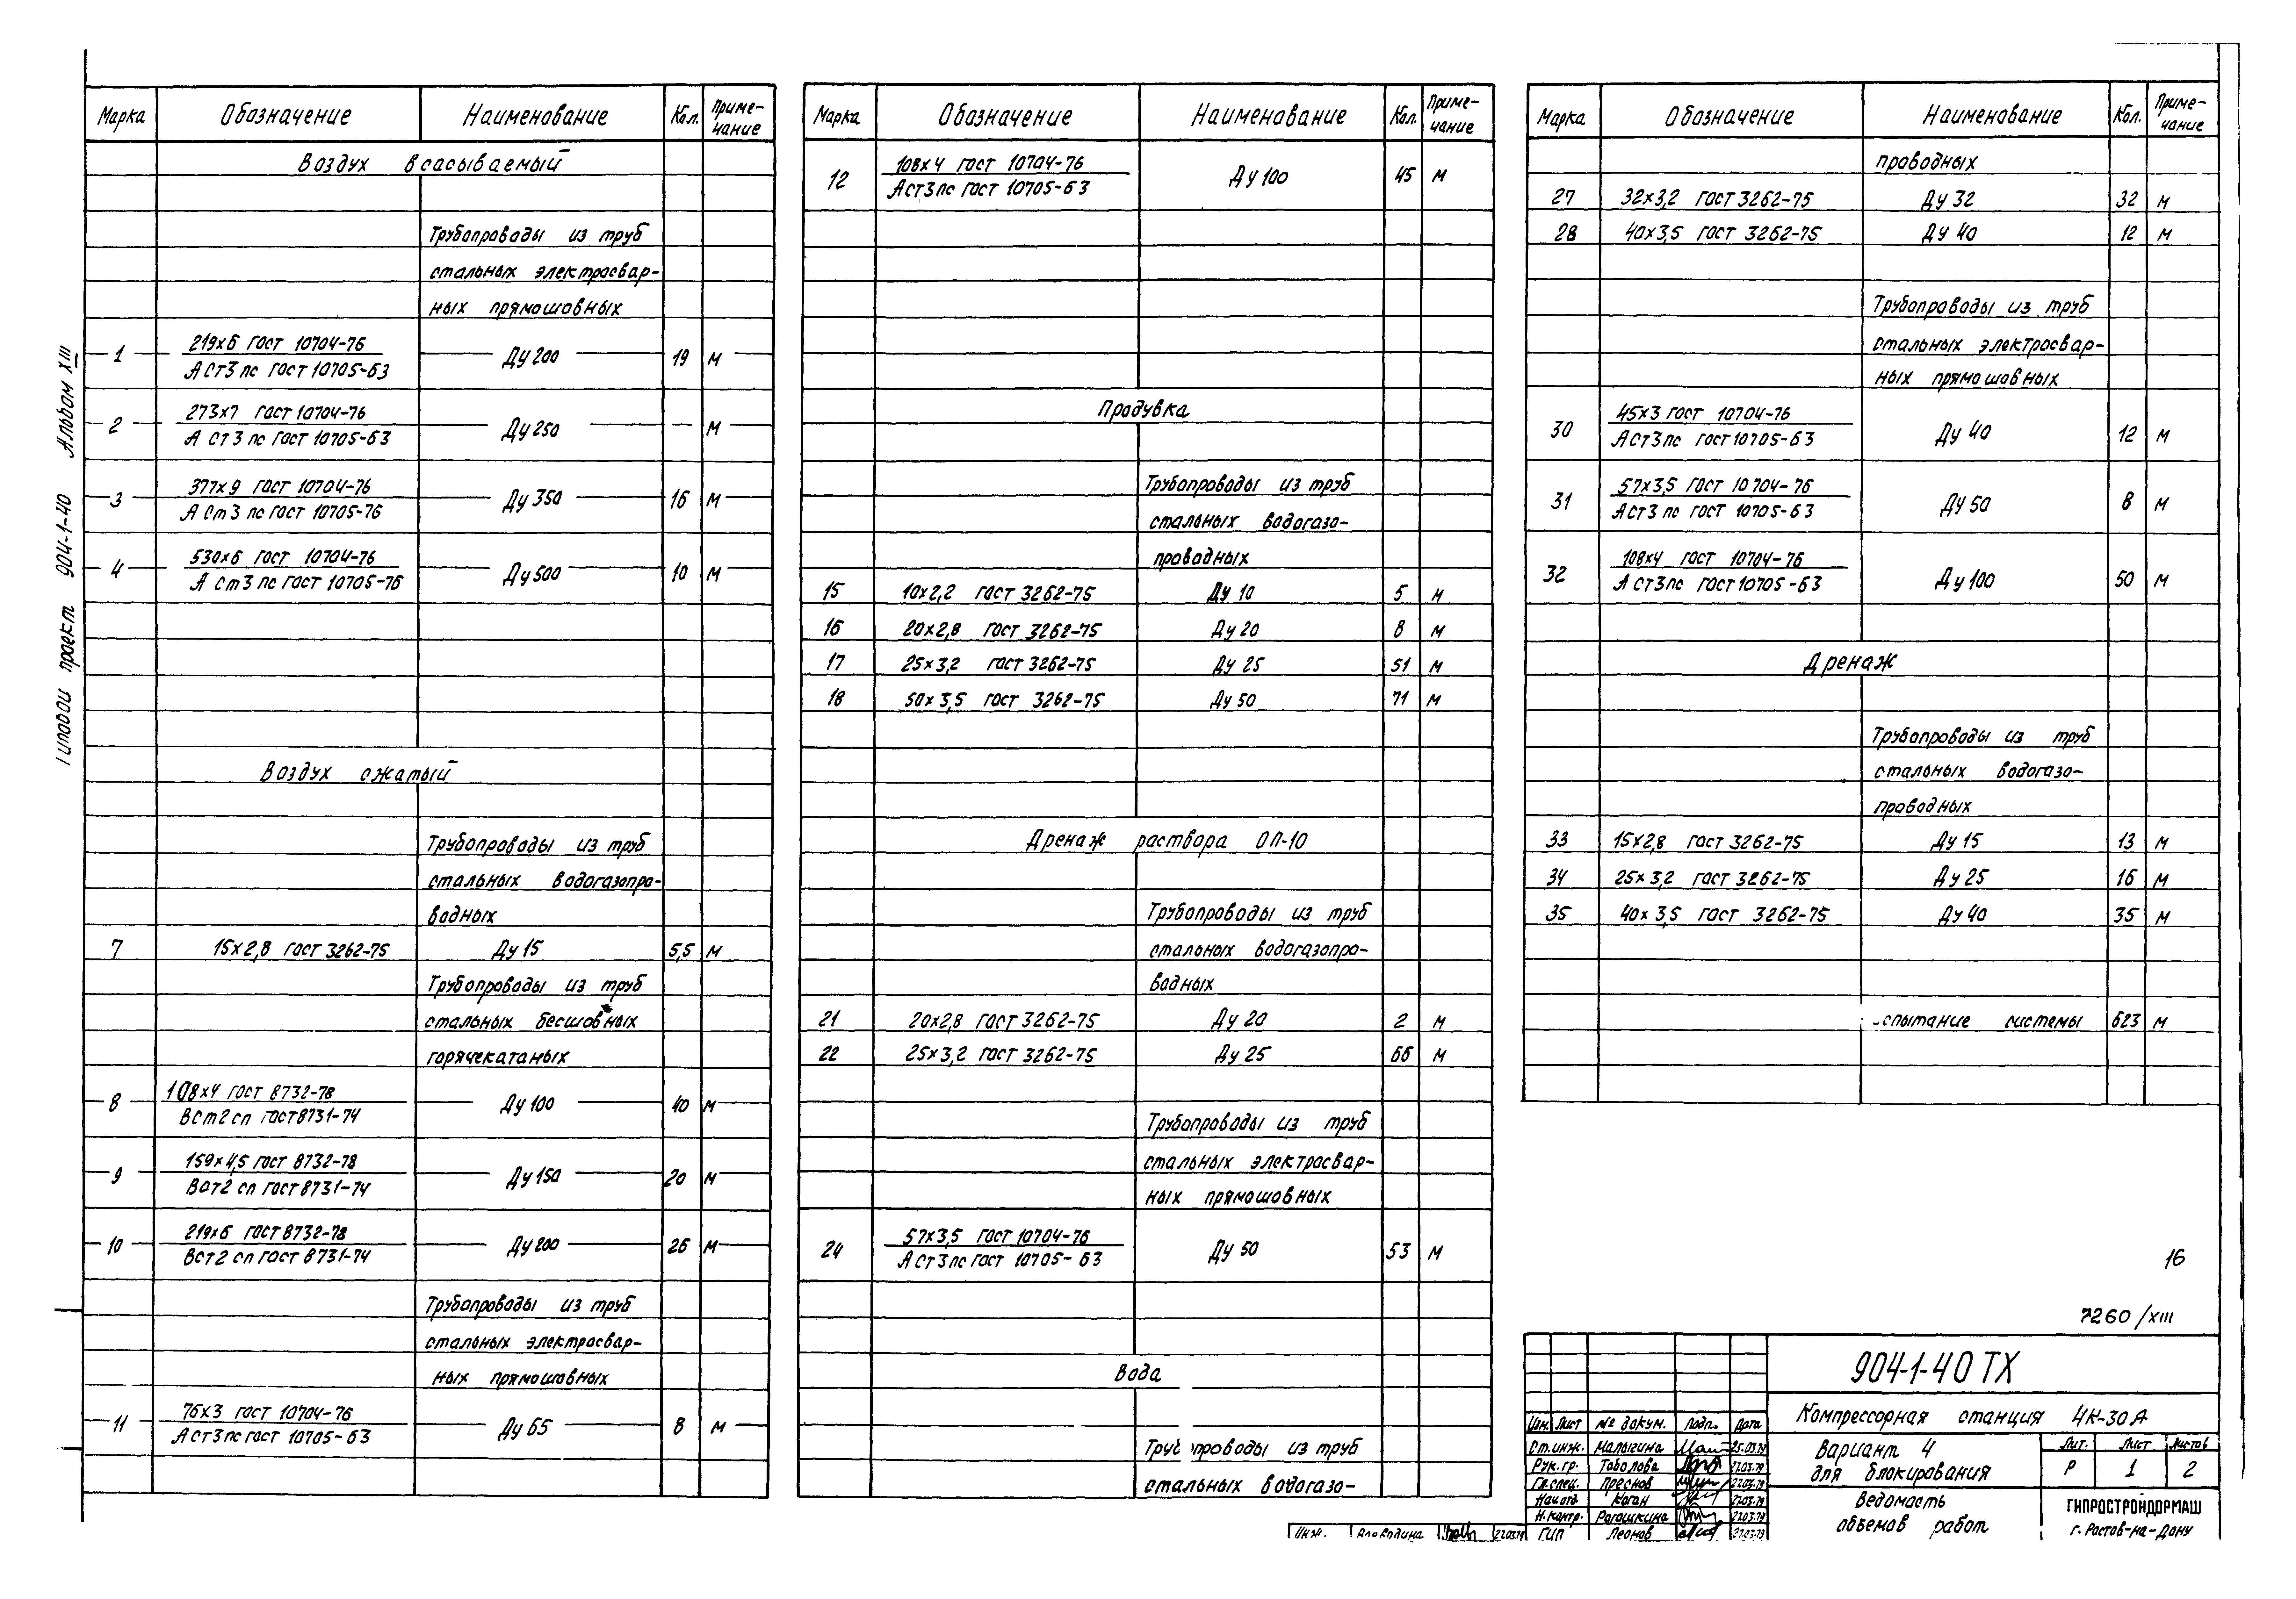 Типовой проект 904-1-40 Альбом XIII
Марка Обозначение Наименование Кол. Приме-чание
Воздух всасываемый
Трубопроводы из труб
стальных электросвар-
ных прямошовных
1 219х6 ГОСТ 10704-76 Ду 200 19 м
А Ст3 пс ГОСТ 10705-63
2 273х7 ГОСТ 10704-76 Ду 250 — м
А Ст3 пс ГОСТ 10705-63
3 377х9 ГОСТ 10704-76 Ду 350 16 м
А Ст3 пс ГОСТ 10705-76
4 530х6 ГОСТ 10704-76 Ду 500 10 м
А Ст3 пс ГОСТ 10705-76
Воздух сжатый
Трубопроводы из труб
стальных водогазопро-
водных
7 15х2,8 ГОСТ 3262-75 Ду 15 5,5 м
Трубопроводы из труб
стальных бесшовных
горячекатаных
8 108х4 ГОСТ 8732-78 Ду 100 40 м
ВСт2сп ГОСТ 8731-74
9 159х4,5 ГОСТ 8732-78 Ду 150 20 м
ВСт2 сп ГОСТ 8731-74
10 219х6 ГОСТ 8732-78 Ду 200 26 м
ВСт2 сп ГОСТ 8731-74
Трубопроводы из труб
стальных электросвар-
ных прямошовных
11 76х3 ГОСТ 10704-76 Ду 65 8 м
А Ст3 пс ГОСТ 10705-63
Марка Обозначение Наименование Кол. Приме-чание
12 108х4 ГОСТ 10704-76 Ду 100 45 м
А Ст3 пс ГОСТ 10705-63
Продувка
Трубопроводы из труб
стальных водогазо-
проводных
15 10х2,2 ГОСТ 3262-75 Ду 10 5 м
16 20х2,8 ГОСТ 3262-75 Ду 20 8 м
17 25х3,2 ГОСТ 3262-75 Ду 25 51 м
18 50х3,5 ГОСТ 3262-75 Ду 50 71 м
Дренаж раствора ОП-10
Трубопроводы из труб
стальных водогазопро-
водных
21 20х2,8 ГОСТ 3262-75 Ду 20 2 м
22 25х3,2 ГОСТ 3262-75 Ду 25 66 м
Трубопроводы из труб
стальных электросвар-
ных прямошовных
24 57х3,5 ГОСТ 10704-76 Ду 50 53 м
А Ст3 пс ГОСТ 10705-63
Вода
Трубопроводы из труб
стальных водогазо-
Марка Обозначение Наименование Кол. Приме-чание
проводных
27 32х3,2 ГОСТ 3262-75 Ду 32 32 м
28 40х3,5 ГОСТ 3262-75 Ду 40 12 м
Трубопроводы из труб
стальных электросвар-
ных прямошовных
30 45х3 ГОСТ 10704-76 Ду 40 12 м
А Ст3 пс ГОСТ 10705-63
31 57х3,5 ГОСТ 10704-76 Ду 50 8 м
А Ст3 пс ГОСТ 10705-63
32 108х4 ГОСТ 10704-76 Ду 100 50 м
А Ст3 пс ГОСТ 10705-63
Дренаж
Трубопроводы из труб
стальных водогазо-
проводных
33 15х2,8 ГОСТ 3262-75 Ду 15 13 м
34 25х3,2 ГОСТ 3262-75 Ду 25 16 м
35 40х3,5 ГОСТ 3262-75 Ду 40 35 м
спытание системы 623 м
16
7260/XIII
904-1-40 ТХ
Компрессорная станция 4К-30А
Изм. Лист № докум. Подп. Дата
Ст.инж. Малыгина 25.03.79
Рук.гр. Таволова 27.03.79
Гл.спец. Преснов 27.03.79
Нач.отд. Коган 27.03.79
Н.контр. Рагошкина 27.03.79
ГИП Леонов 27.03.79
Инж. 27.03.79
Вариант 4
для блокирования
Лит. Лист Листов
Р 1 2
Ведомость
объемов работ
ГИПРОСТРОЙДОРМАШ
г. Ростов-на-Дону